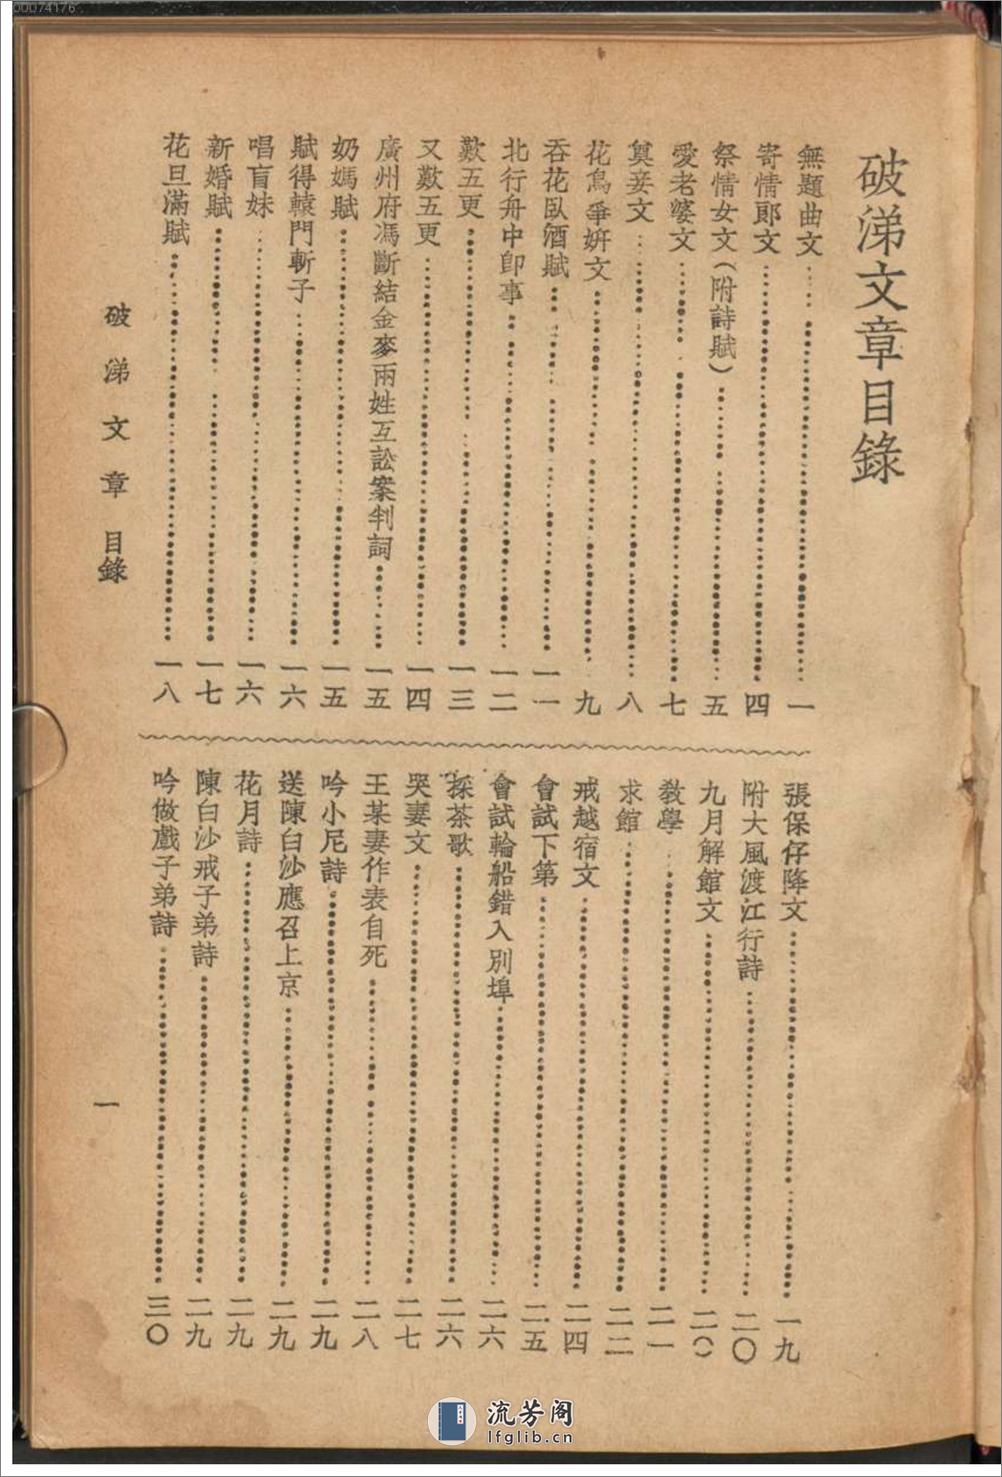 00074176
破涕文章目錄
無題曲文……一
寄情郎文……四
祭情女文(附詩賦)……五
愛老婆文……七
奠妾文……八
花鳥爭妍文……九
吞花臥酒賦……一一
北行舟中即事……一二
歎五更……一三
又歎五更……一四
廣州府馮斷結金麥兩姓互訟案判詞……一五
奶媽賦……一五
賦得轅門斬子……一六
唱盲妹……一六
新婚賦……一七
花旦滿賦……一八
張保仔降文……一九
附大風渡江行詩……二〇
九月解館文……二〇
敎學……二一
求館……二二
戒越宿文……二四
會試下第……二五
會試輪船錯入別埠……二六
採茶歌……二六
哭妻文……二七
王某妻作表自死……二八
吟小尼詩……二九
送陳白沙應召上京……二九
花月詩……二九
陳白沙戒子弟詩……二九
吟做戲子弟詩……三〇
破涕文章目錄
一
流芳阁
lfglib.cn